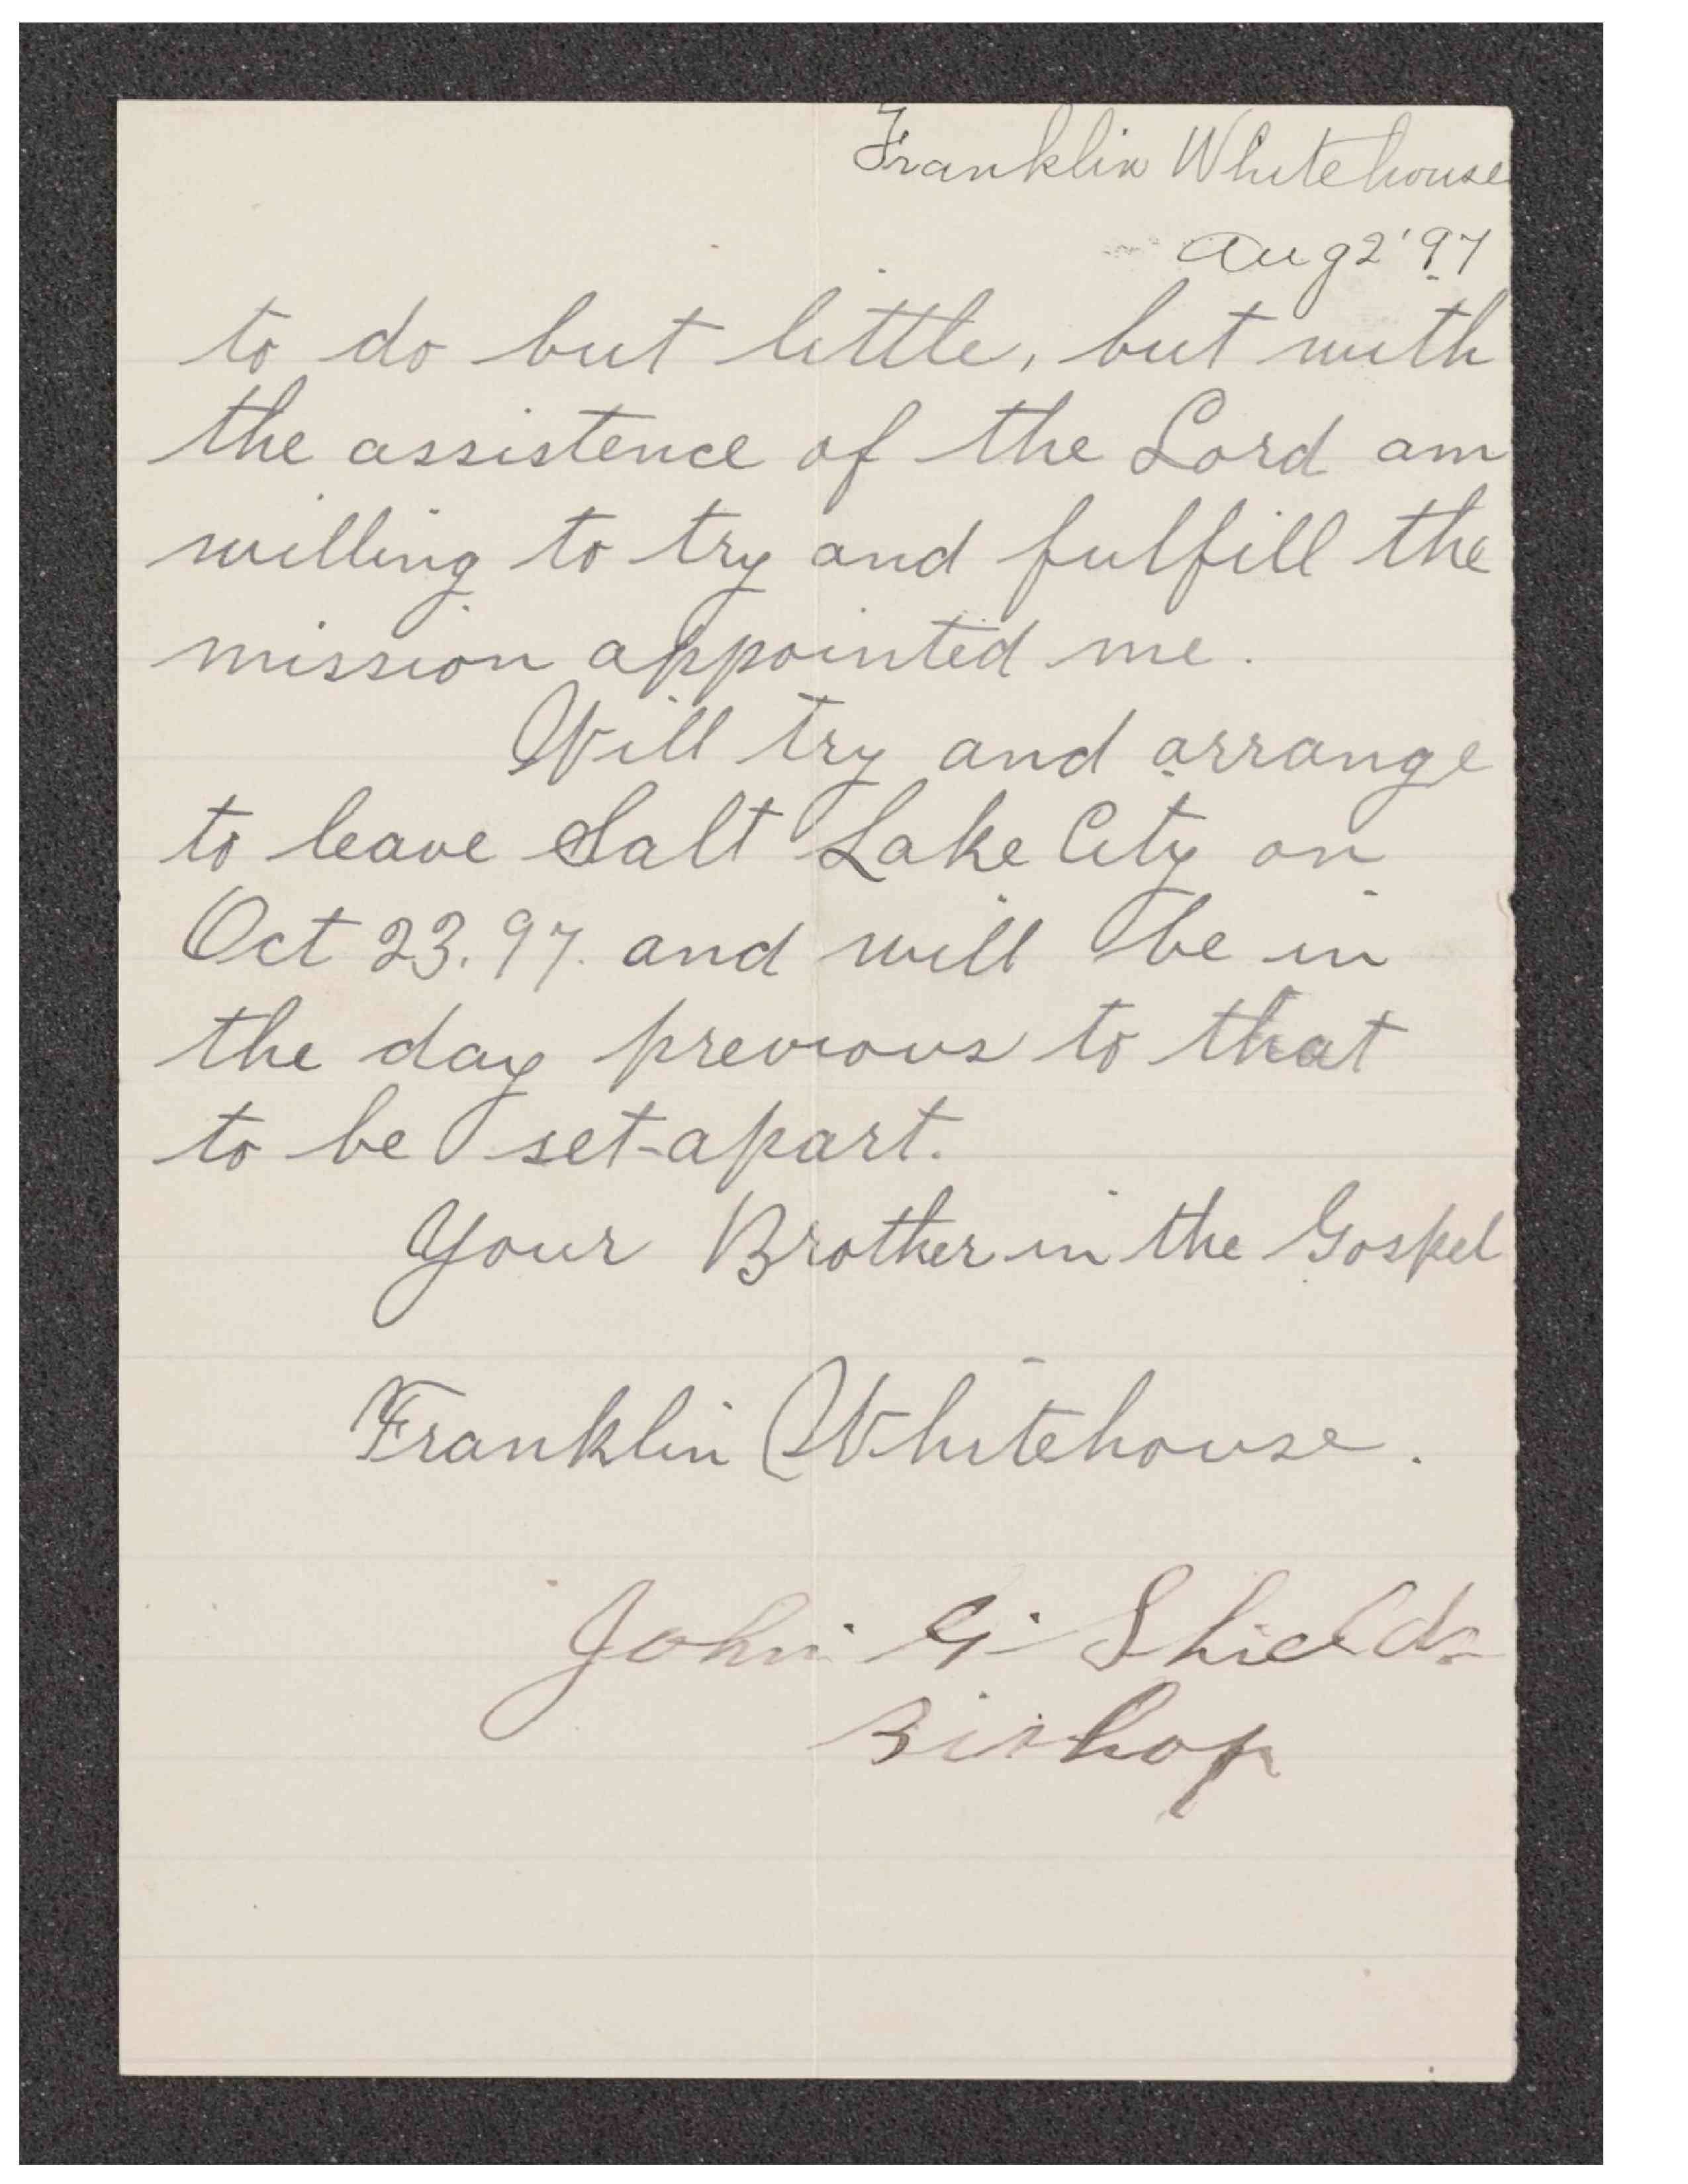 Franklin Whitehouse
Aug 2 '97
to do but little, but with
the assistence of the Lord am
willing to try and fulfill the
mission appointed me.
Will try and arrange
to leave Salt Lake City on
Oct 23. 97. and will be in
the day previous to that
to be set-apart.
Your Brother in the Gospel
Franklin Whitehouse.
John G. Shields
Bishop